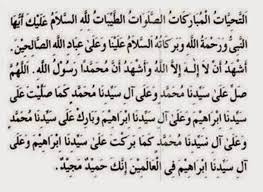 التَّحِيَّاتُ الْمُبَارَكَاتُ الصَّلَوَاتُ الطَّيِّبَاتُ لِلَّهِ السَّلَامُ عَلَيْكَ أَيُّهَا
النَّبِيُّ وَرَحْمَةُ اللهِ وَبَرَكَاتُهُ السَّلَامُ عَلَيْنَا وَعَلَى عِبَادِ اللهِ الصَّالِحِيْنَ.
أَشْهَدُ أَنْ لَا إِلَهَ إِلَّا اللهُ وَأَشْهَدُ أَنَّ مُحَمَّدًا رَسُوْلُ اللهِ. اَللَّهُمَّ
صَلِّ عَلَى سَيِّدِنَا مُحَمَّدٍ وَعَلَى آلِ سَيِّدِنَا مُحَمَّدٍ كَمَا صَلَّيْتَ عَلَى
سَيِّدِنَا اِبْرَاهِيْمَ وَعَلَى آلِ سَيِّدِنَا اِبْرَاهِيْمَ وَبَارِكْ عَلَى سَيِّدِنَا مُحَمَّدٍ
وَعَلَى آلِ سَيِّدِنَا مُحَمَّدٍ كَمَا بَرَكْتَ عَلَى سَيِّدِنَا اِبْرَاهِيْمَ وَعَلَى
آلِ سَيِّدِنَا اِبْرَاهِيْمَ فِى الْعَالَمِيْنَ اِنَّكَ حَمِيْدٌ مَجِيْدٌ.